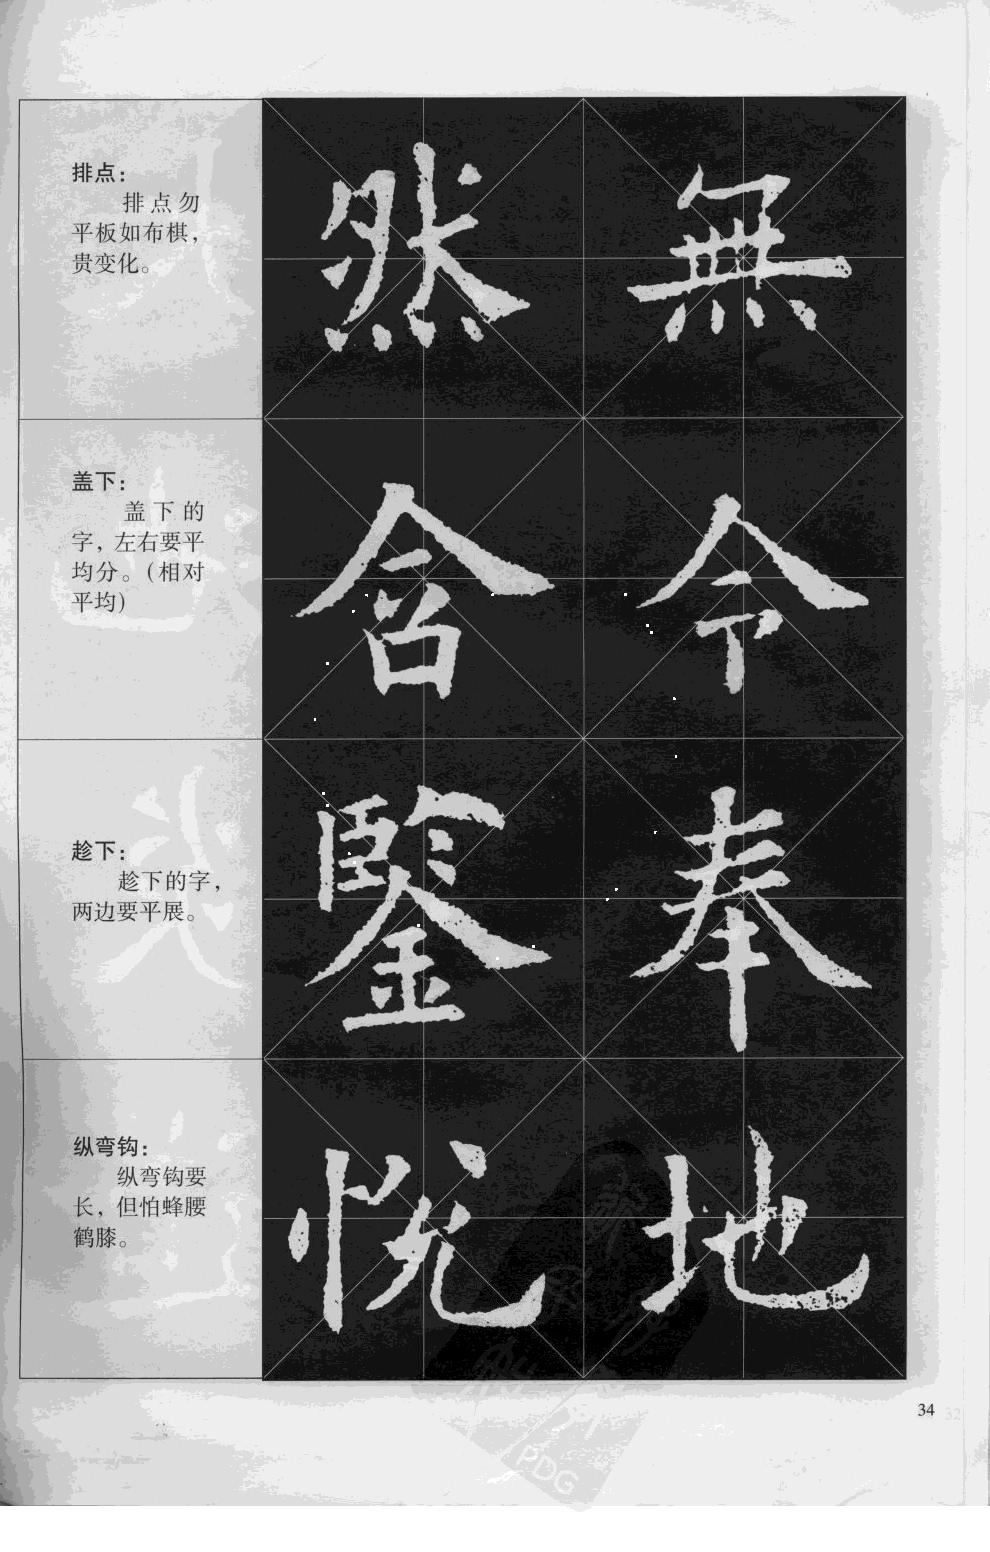 排点:
排点勿
平板如布棋,
贵变化。
然 無
盖下:
盖下的
字, 左右要平
均分。(相对
平均)
含 令
趁下:
趁下的字,
两边要平展。
鋻 奉
纵弯钩:
纵弯钩要
长, 但怕蜂腰
鹤膝。
悦 地
34
PDG